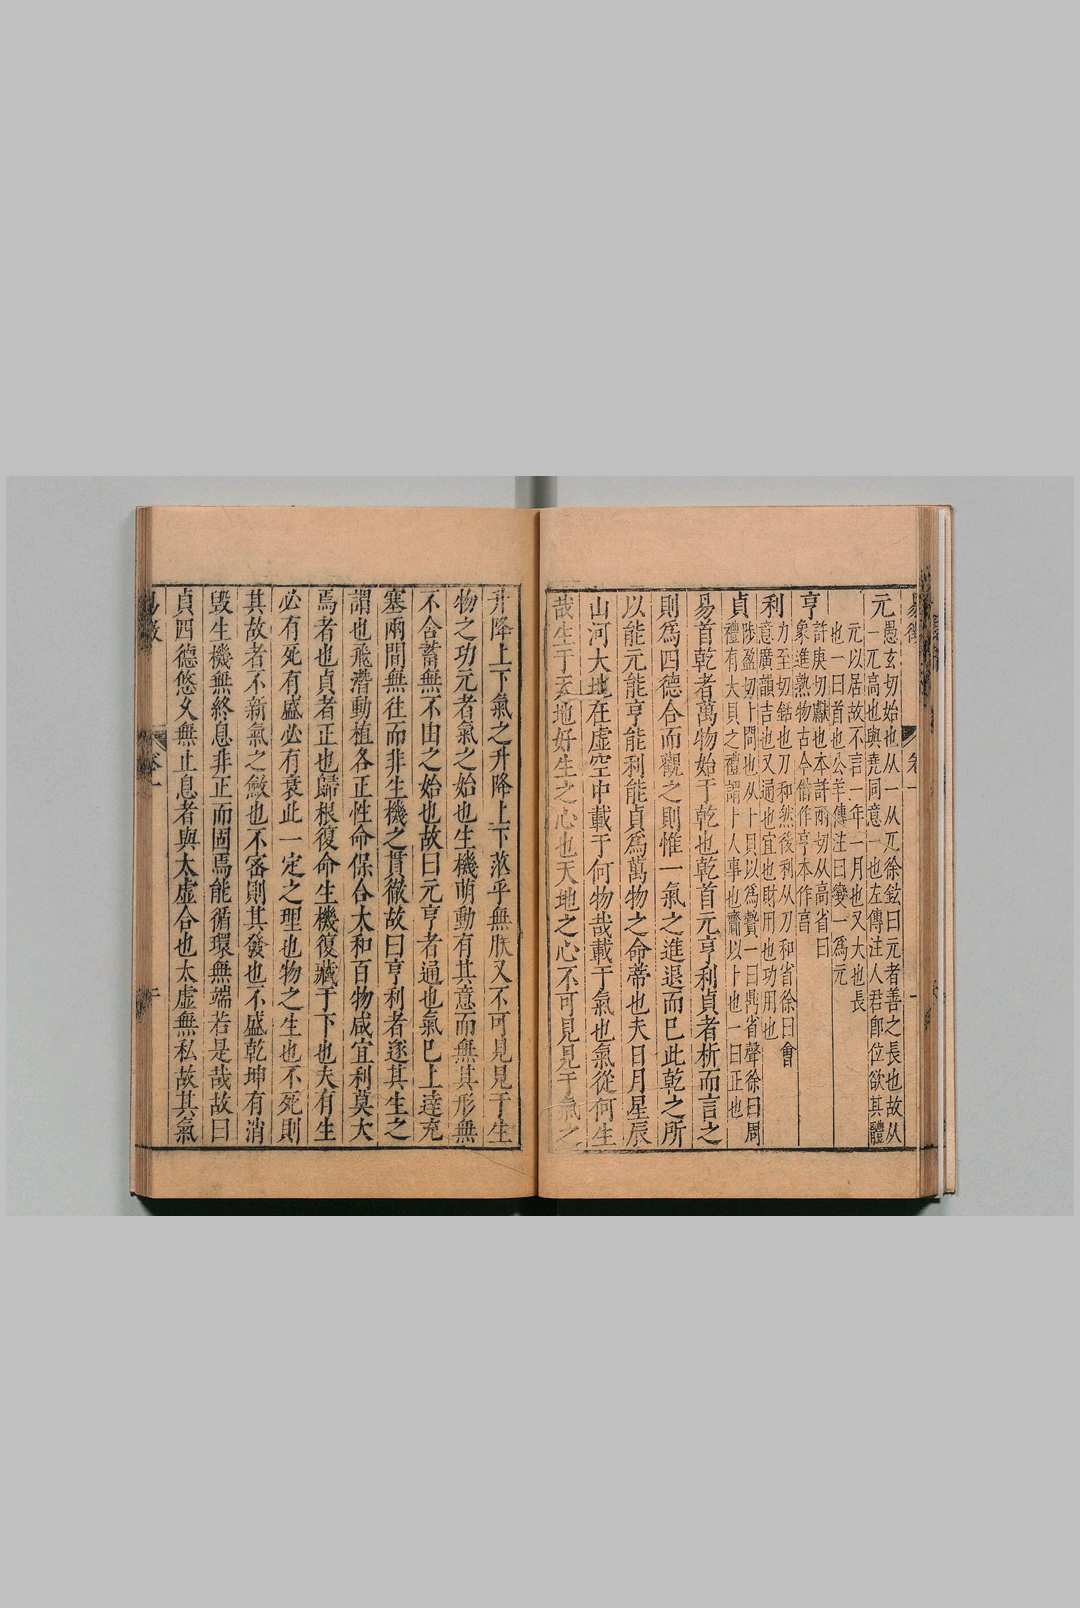 元
愚玄切始也从一从兀徐鉉曰元者善之長也故从
一兀高也與堯同意一也左傳注人君即位欲其體
元以居故不言一年一月也又大也長
也一曰首也公羊傳注曰變一為元
亨
許庚切獻也本許兩切从高省曰
象進熟物古今借作亨本作亯
利
力至切銛也刀和然後利从刀和省徐曰會
意廣韻吉也又通也宜也財用也功用也
貞
陟盈切卜問也从卜貝以為贄一曰鼎省聲徐曰周
禮有大貝之禮謂卜人事也齎以卜也一曰正也
易首乾者萬物始于乾也乾首元亨利貞者析而言之
則為四德合而觀之則惟一氣之進退而已此乾之所
以能元能亨能利能貞為萬物之命蒂也夫日月星辰
山河大地在虛空中載于何物哉載于氣也氣從何生
哉生于天地好生之心也天地之心不可見見于氣之
升降上下氣之升降上下茲乎無朕又不可見見于生
物之功元者氣之始也生機萌動有其意而無其形無
不含蓄無不由之始也故曰元亨者通也氣已上達充
塞兩間無往而非生機之貫徹故曰亨利者遂其生之
謂也飛潛動植各正性命保合太和百物咸宜利莫大
焉者也貞者正也歸根復命生機復藏于下也夫有生
必有死有盛必有衰此一定之理也物之生也不死則
其故者不新氣之斂也不密則其發也不盛乾坤有消
毀生機無終息非正而固焉能循環無端若是哉故曰
貞四德悠久無止息者與太虛合也太虛無私故其氣
卷一